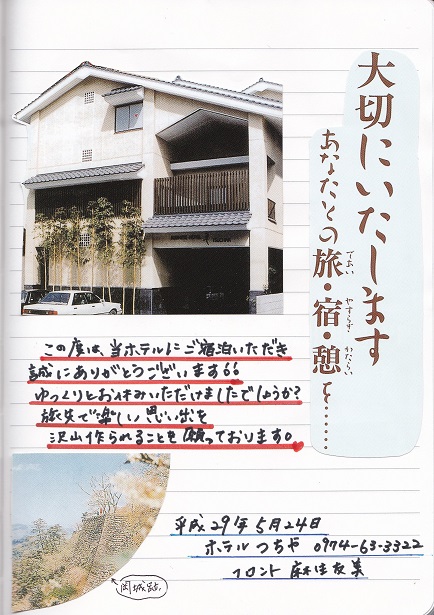 大切にいたします
あなたとの旅・宿・憩を……
であい
やすらぎ
かたらい
この度は、当ホテルにご宿泊いただき
誠にありがとうございます。
ゆっくりとお休みいただけましたでしょうか?
旅先で楽しい思い出を
沢山作られることを願っております。
岡城跡
平成29年5月24日
ホテルつちや 0974-63-3322
フロント